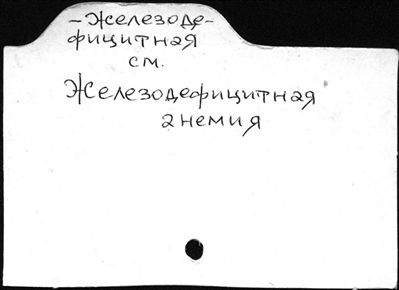 -Железоде-
фицитная
см.
Железодефицитная
анемия